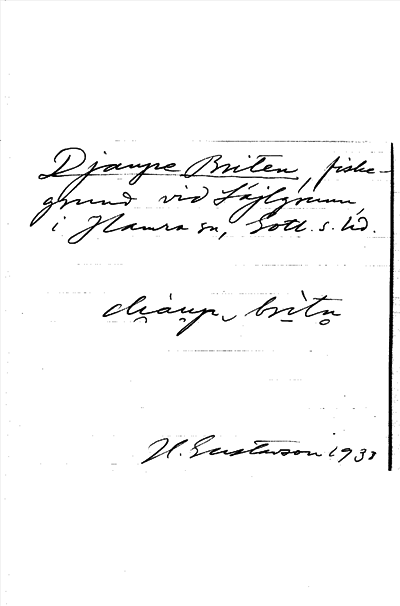 Djaupe Briten, fiske-
grund vid Säjlgrunn,
i Hamra sn, Gotl. s. üd.
di̯àu̯p brìtn̥
H. Gustavson 1933